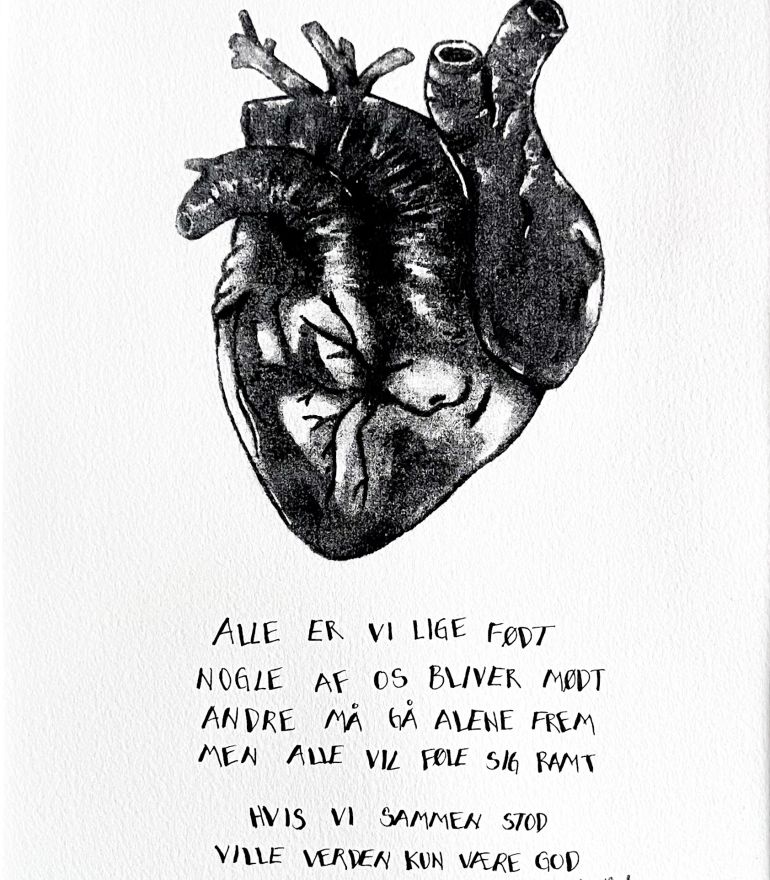 ALLE ER VI LIGE FØDT
NOGLE AF OS BLIVER MØDT
ANDRE MÅ GÅ ALENE FREM
MEN ALLE VIL FØLE SIG RAMT
HVIS VI SAMMEN STOD
VILLE VERDEN KUN VÆRE GOD